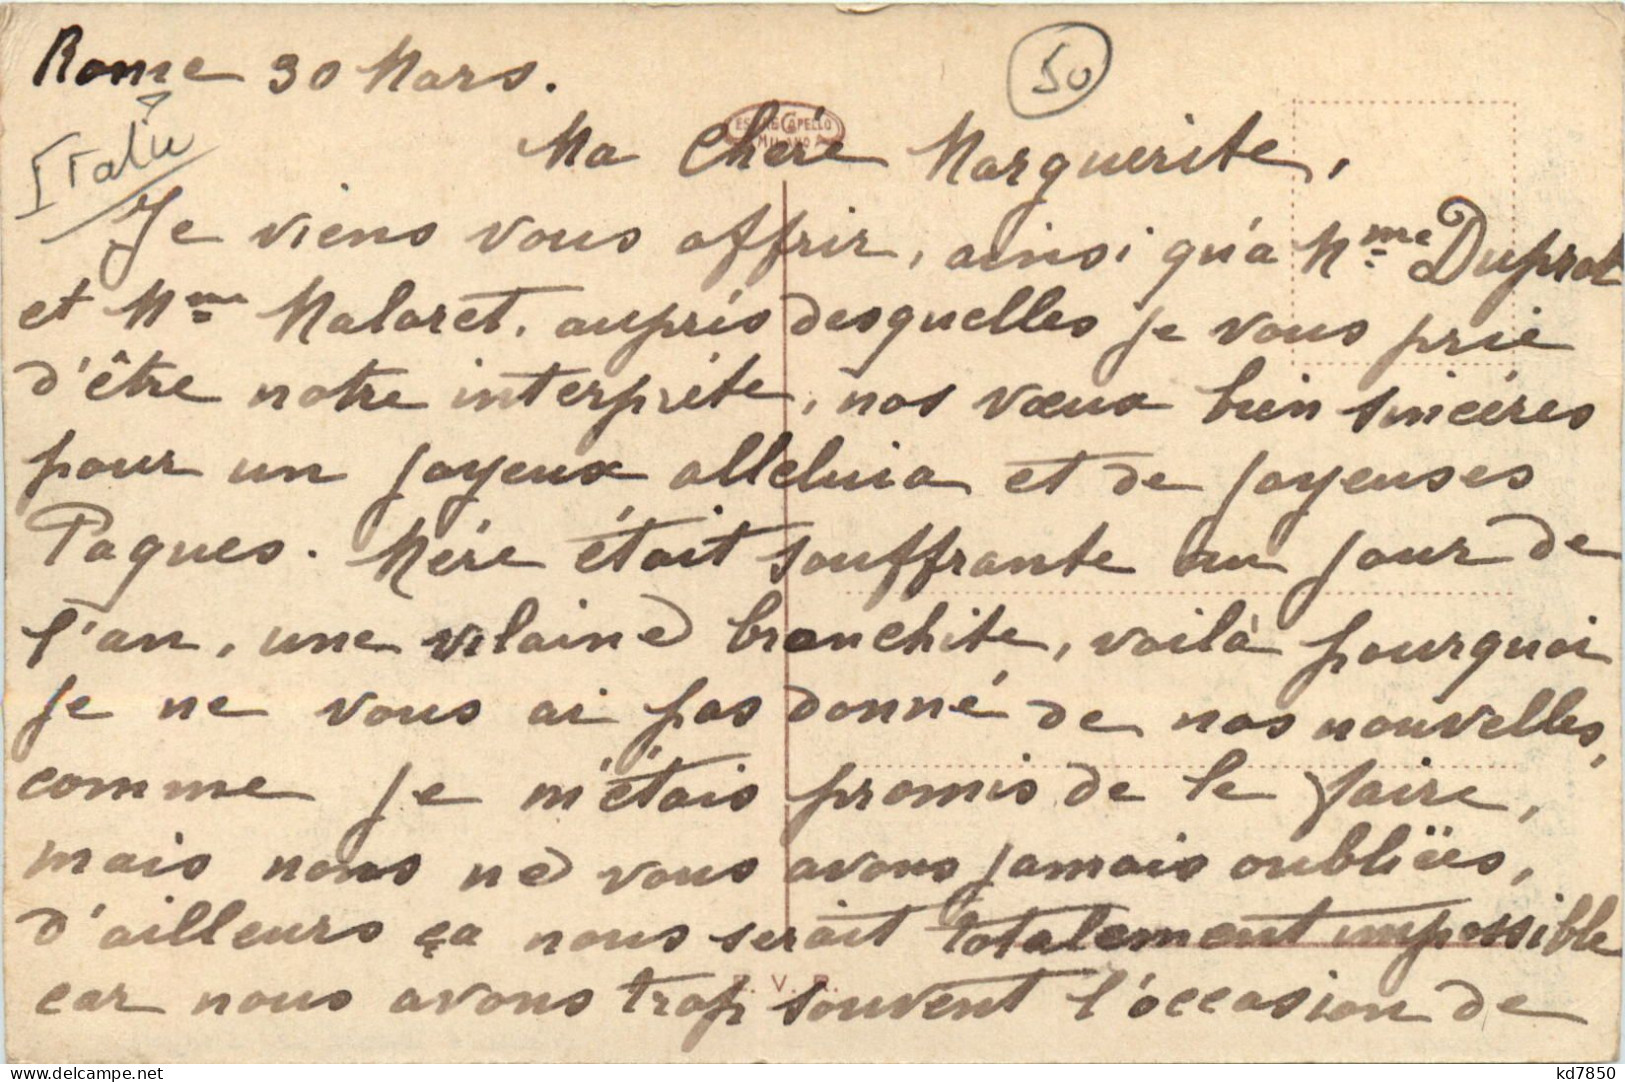 Rome 30 Mars.
50
Italie
ESERC CAPELLO
MILANO
Ma Chère Marguerite,
Je viens vous offrir, ainsi qu'a Mme Duprat
et Mme Malaret, auprès desquelles je vous prie
d'être notre interprète, nos vœux bien sincères
pour un joyeux alleluia et de joyeuses
Paques. Mère était souffrante au jour de
l'an, une vilaine bronchite, voilà pourquoi
je ne vous ai pas donné de nos nouvelles,
comme je m'étais promis de le faire,
mais nous ne vous avons jamais oubliées,
d'ailleurs ça nous serait totalement impossible
car nous avons trop souvent l'occasion de
delcampe.net
kd7850